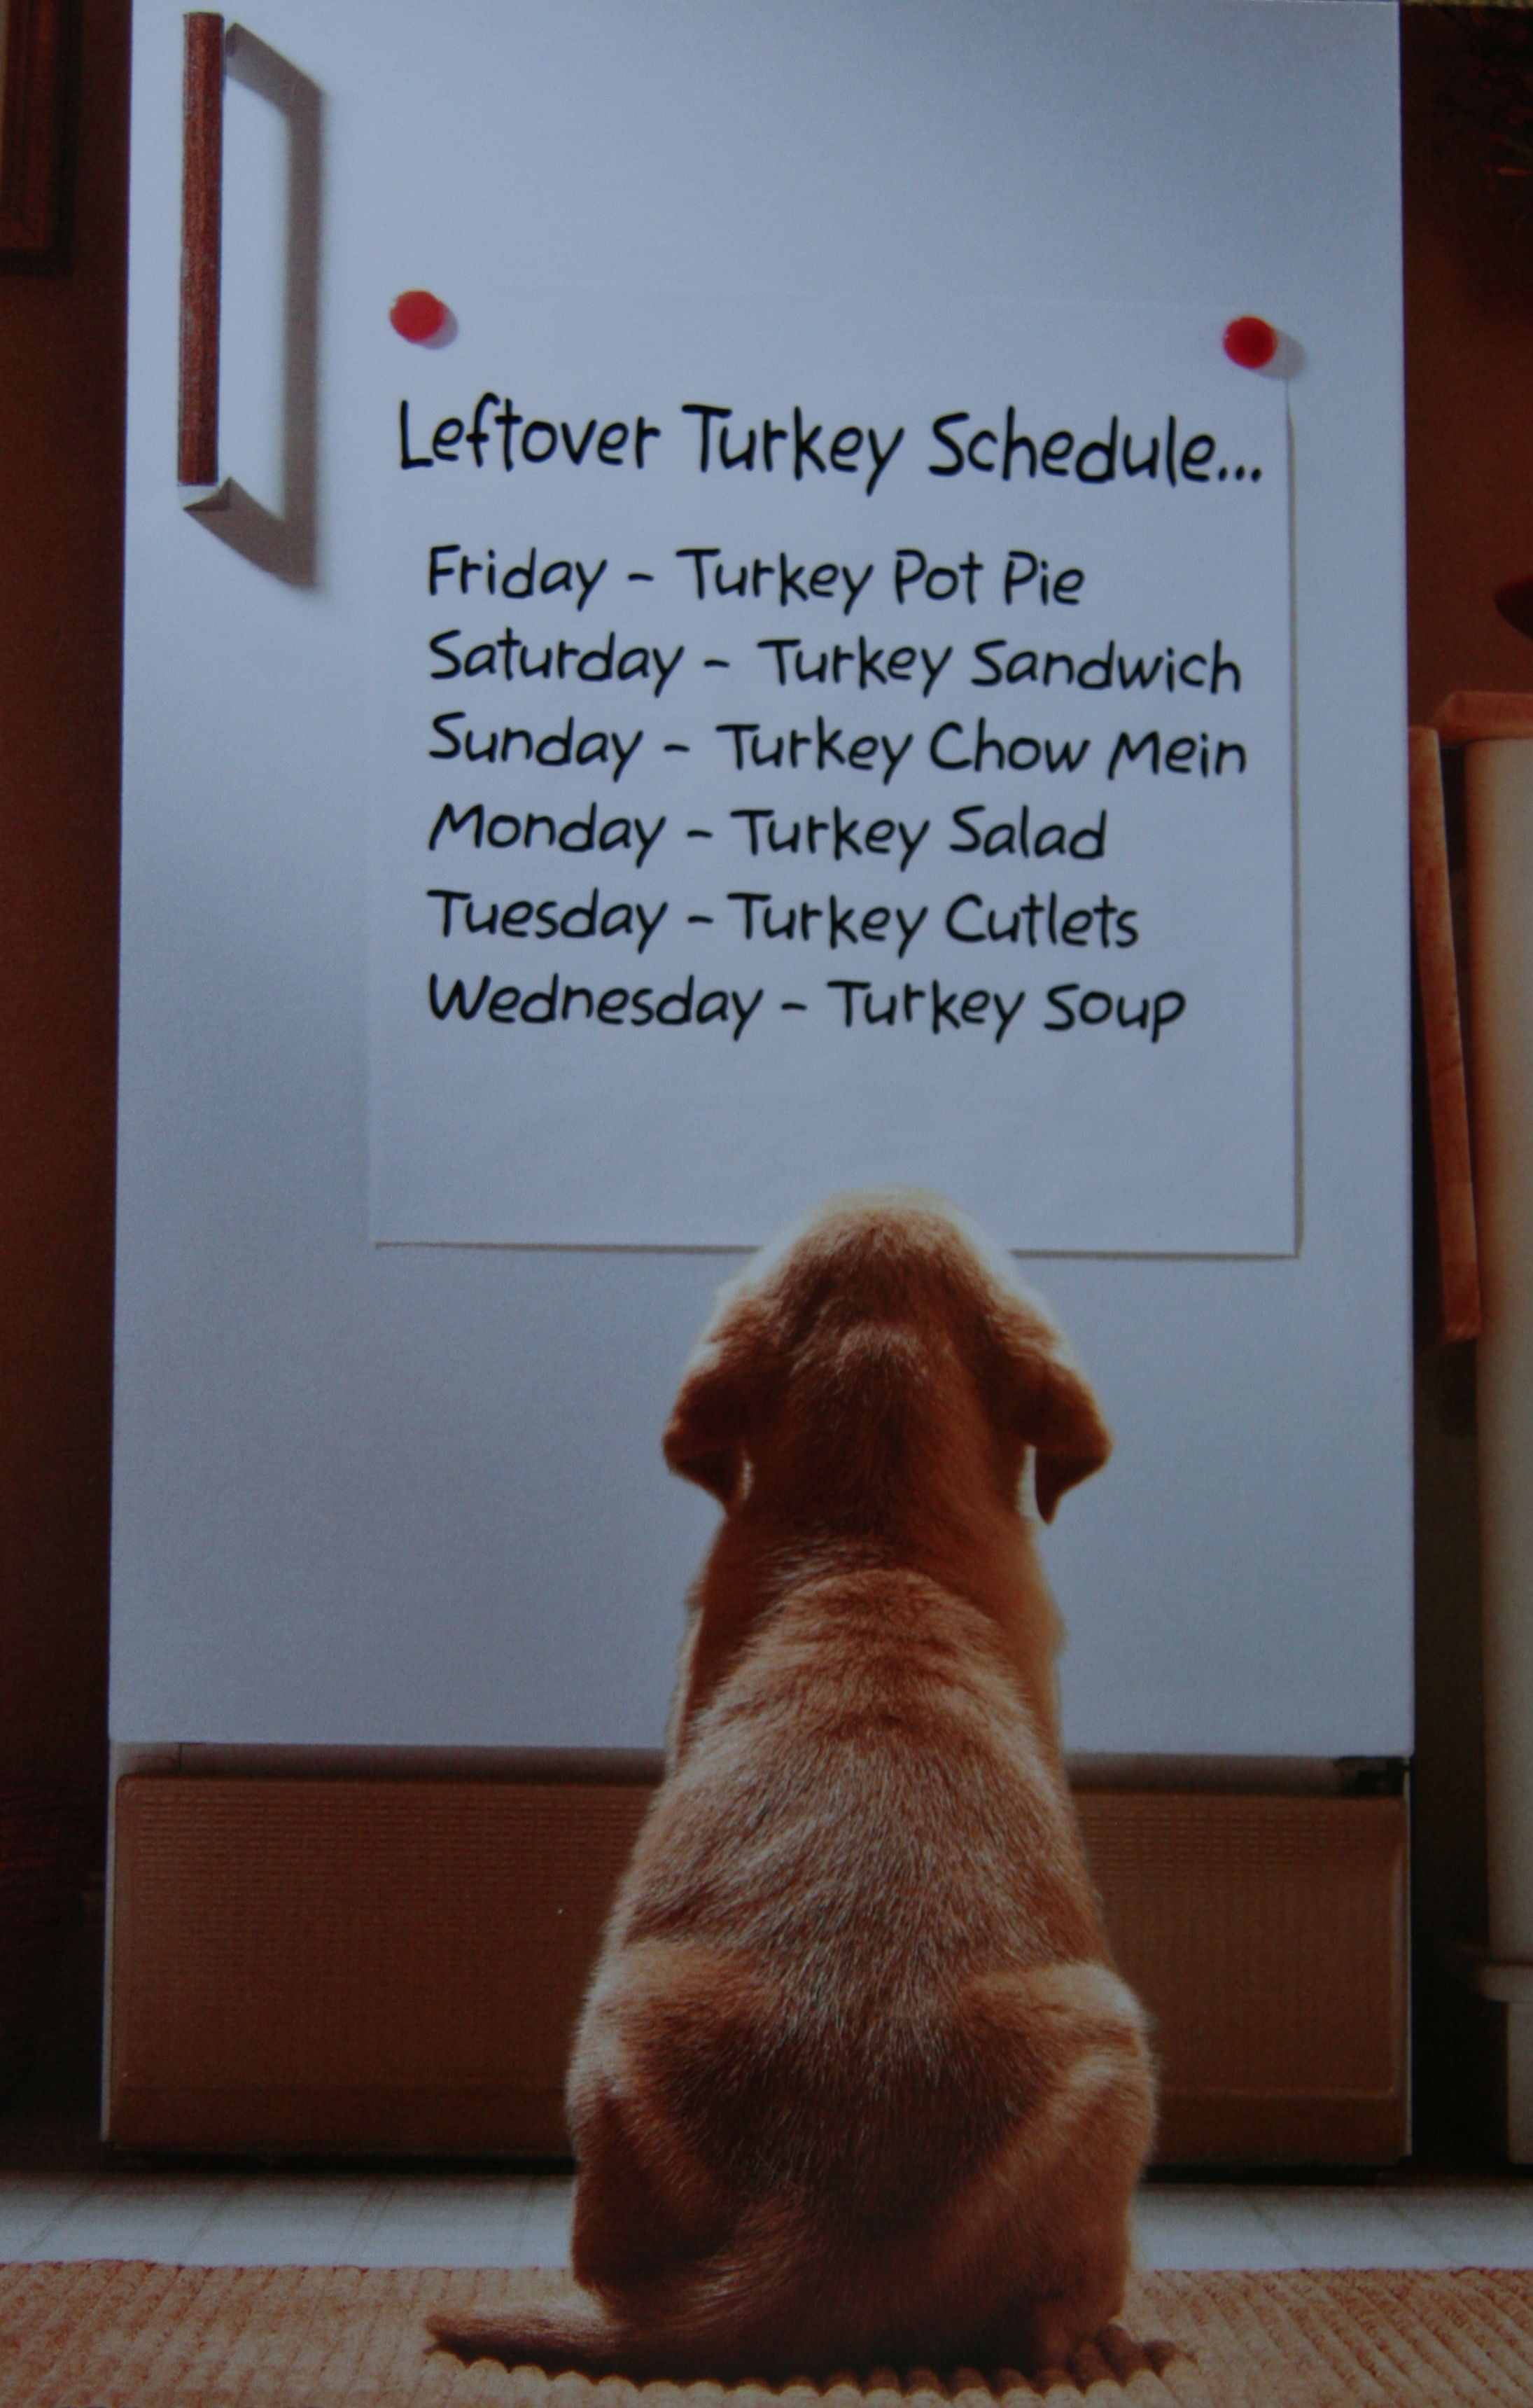 Leftover Turkey Schedule...
Friday - Turkey Pot Pie
Saturday - Turkey Sandwich
Sunday - Turkey Chow Mein
Monday - Turkey Salad
Tuesday - Turkey Cutlets
Wednesday - Turkey Soup